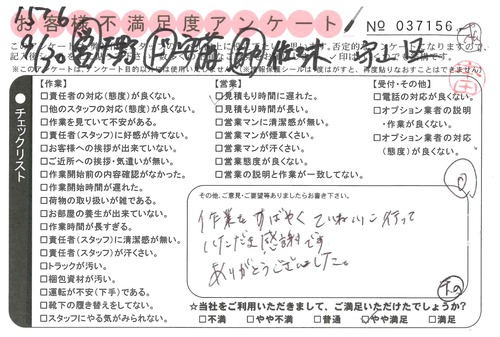 1576
お客様不満足度アンケート
No 037156
9/30
守山区
チェックリスト
【作業】
□責任者の対応(態度)が良くない。
□他のスタッフの対応(態度)が良くない。
□作業を見ていて不安がある。
□責任者(スタッフ)に好感が持てない。
□お客様への挨拶が出来ていない。
□ご近所への挨拶・気遣いが無い。
□作業開始前の内容確認がなかった。
□作業開始時間が遅れた。
□荷物の取り扱いが雑である。
□お部屋の養生が出来ていない。
□作業時間が長すぎる。
□責任者(スタッフ)に清潔感が無い。
□責任者(スタッフ)が汗くさい。
□トラックが汚い。
□梱包資材が汚い。
□運転が不安(下手)である。
□靴下の履き替えをしてない。
□スタッフにやる気がみられない。
【営業】
□見積もり時間に遅れた。
□見積もり時間が長い。
□営業マンに清潔感が無い。
□営業マンが煙草くさい。
□営業マンが汗くさい。
□営業態度が良くない。
□営業の説明と作業が一致してない。
【受付・その他】
□電話の対応が良くない。
□オプション業者の説明
・作業が良くない。
□オプション業者の対応
(態度)が良くない。
その他、ご意見・ご要望等ありましたらお書き下さい。
作業もすばやくていねいに行って
いただき感謝です
ありがとうございました。
☆当社をご利用いただきまして、ご満足いただけたでしょうか?
□不満 □やや不満 □普通 □やや満足 □満足